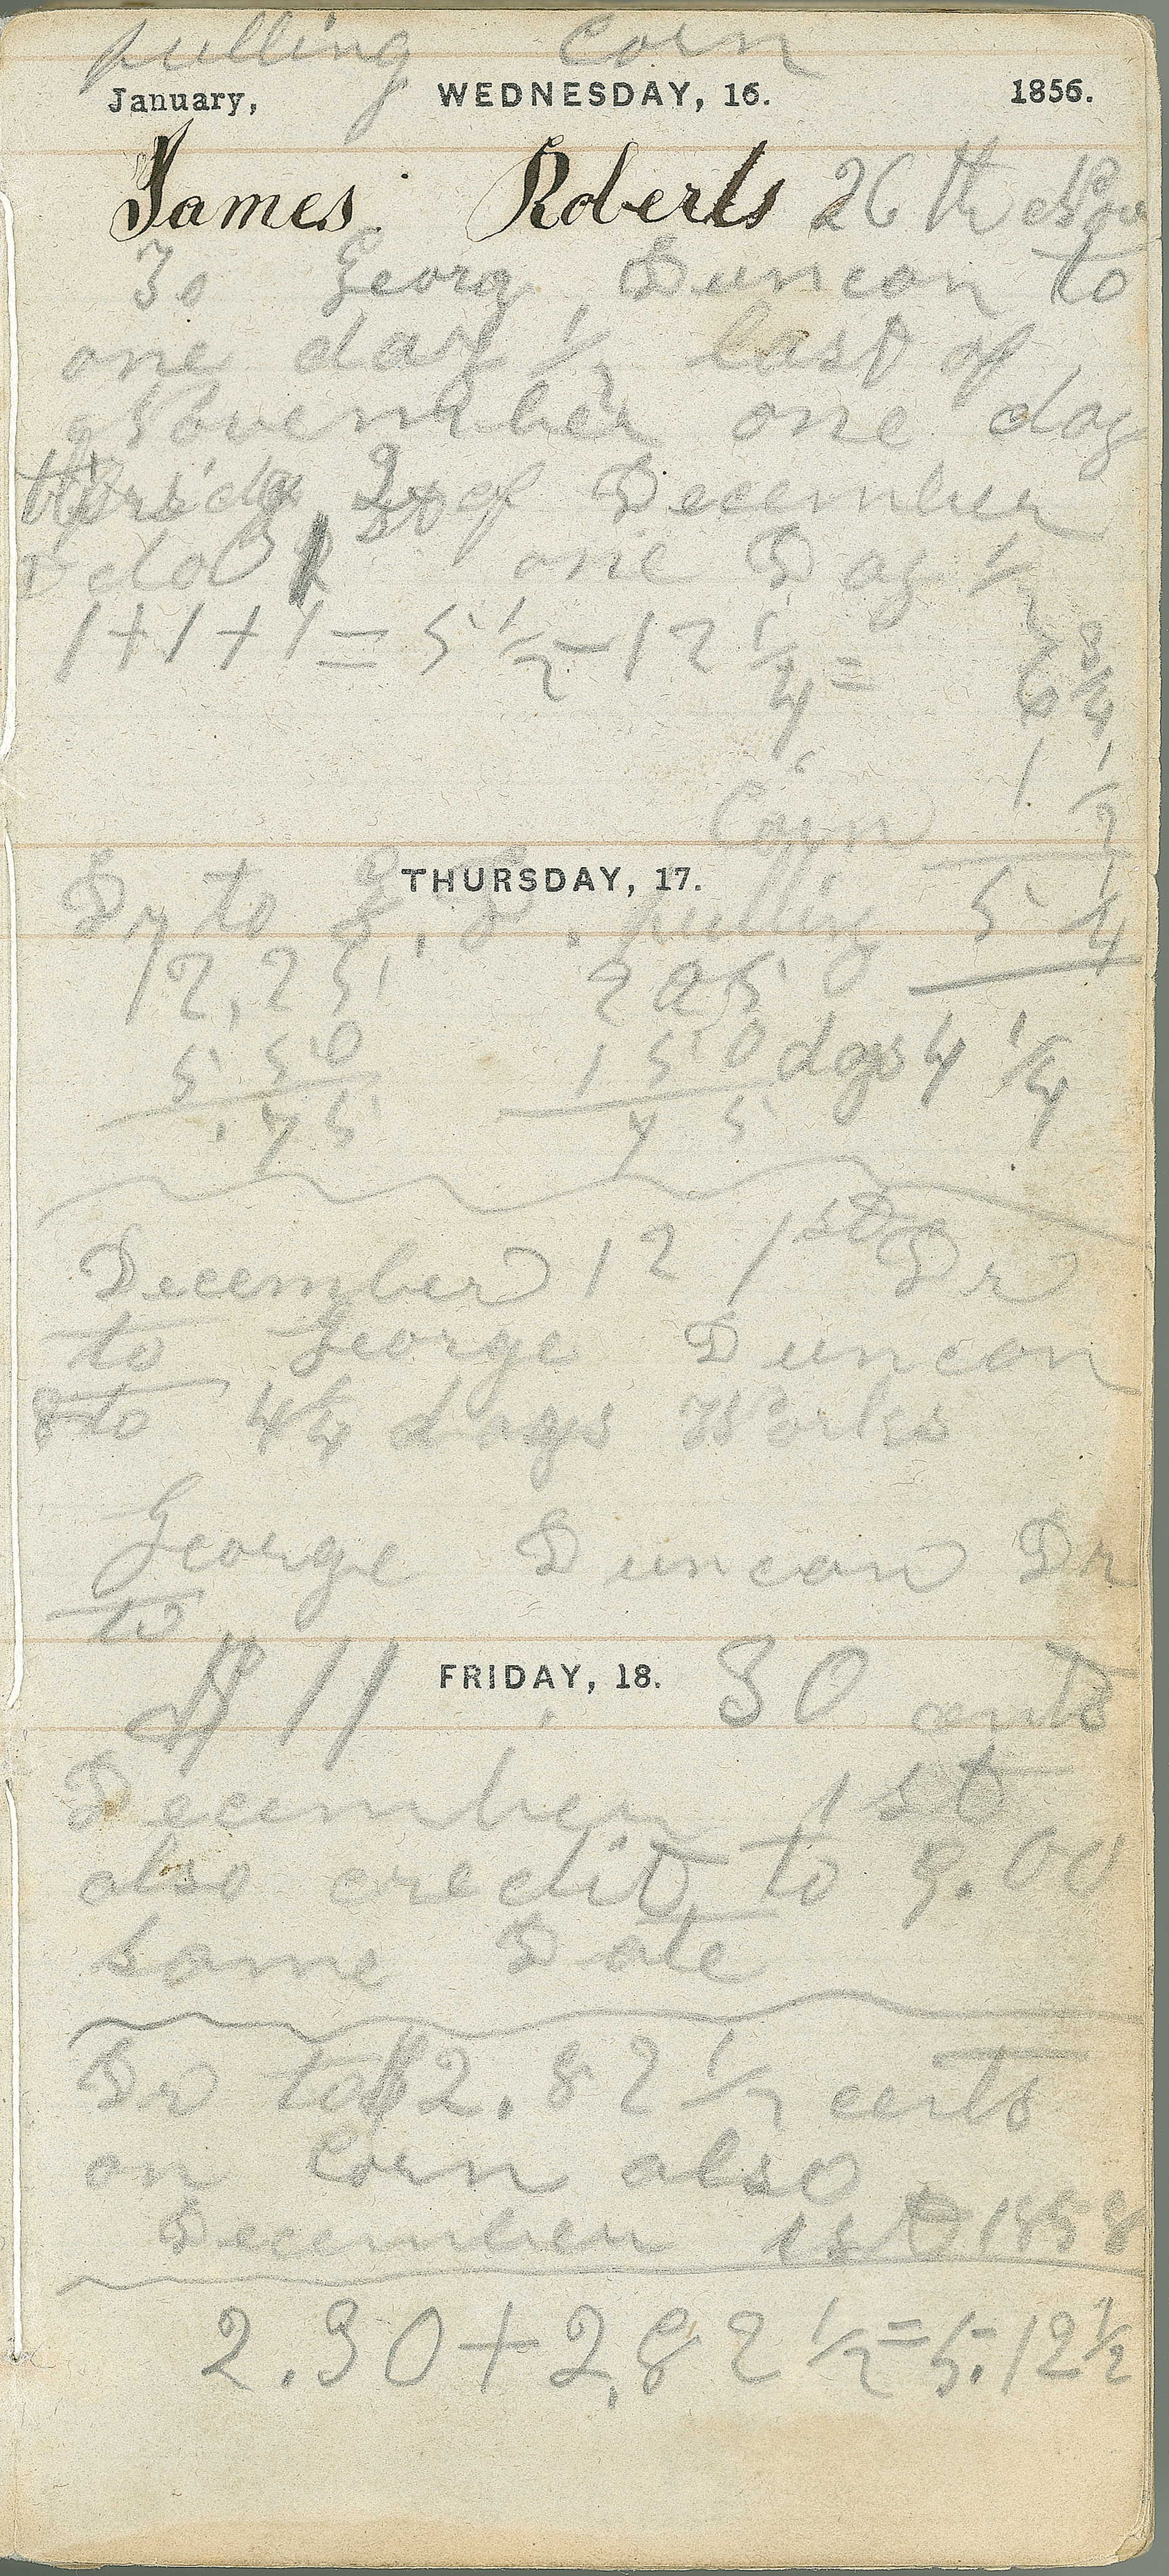 pulling Corn
January, WEDNESDAY, 16. 1856.
James Roberts 26 th Nov
To Georg Duncan to
one day 1/2 last of
November one day
2 of December
one Day 1/2
1+1+1= 5 1/2 - 12 1/4 =
6 3/4
1 1/2
Corn
THURSDAY, 17.
Dr to G, D, pulling 5 1/4
12,25 225
5 50 150 dys 4 1/4
,75 75
December 12 1st Dr
to George Duncan
to 4 1/4 days Works
George Duncan Dr
to
FRIDAY, 18.
$ 11 30 cents
December 1st
also credit to 9.00
same Date
Dr to $2.82 1/2 cents
on Corn also
December 1st 1858
2.30+2,82 1/2=5.12 1/2